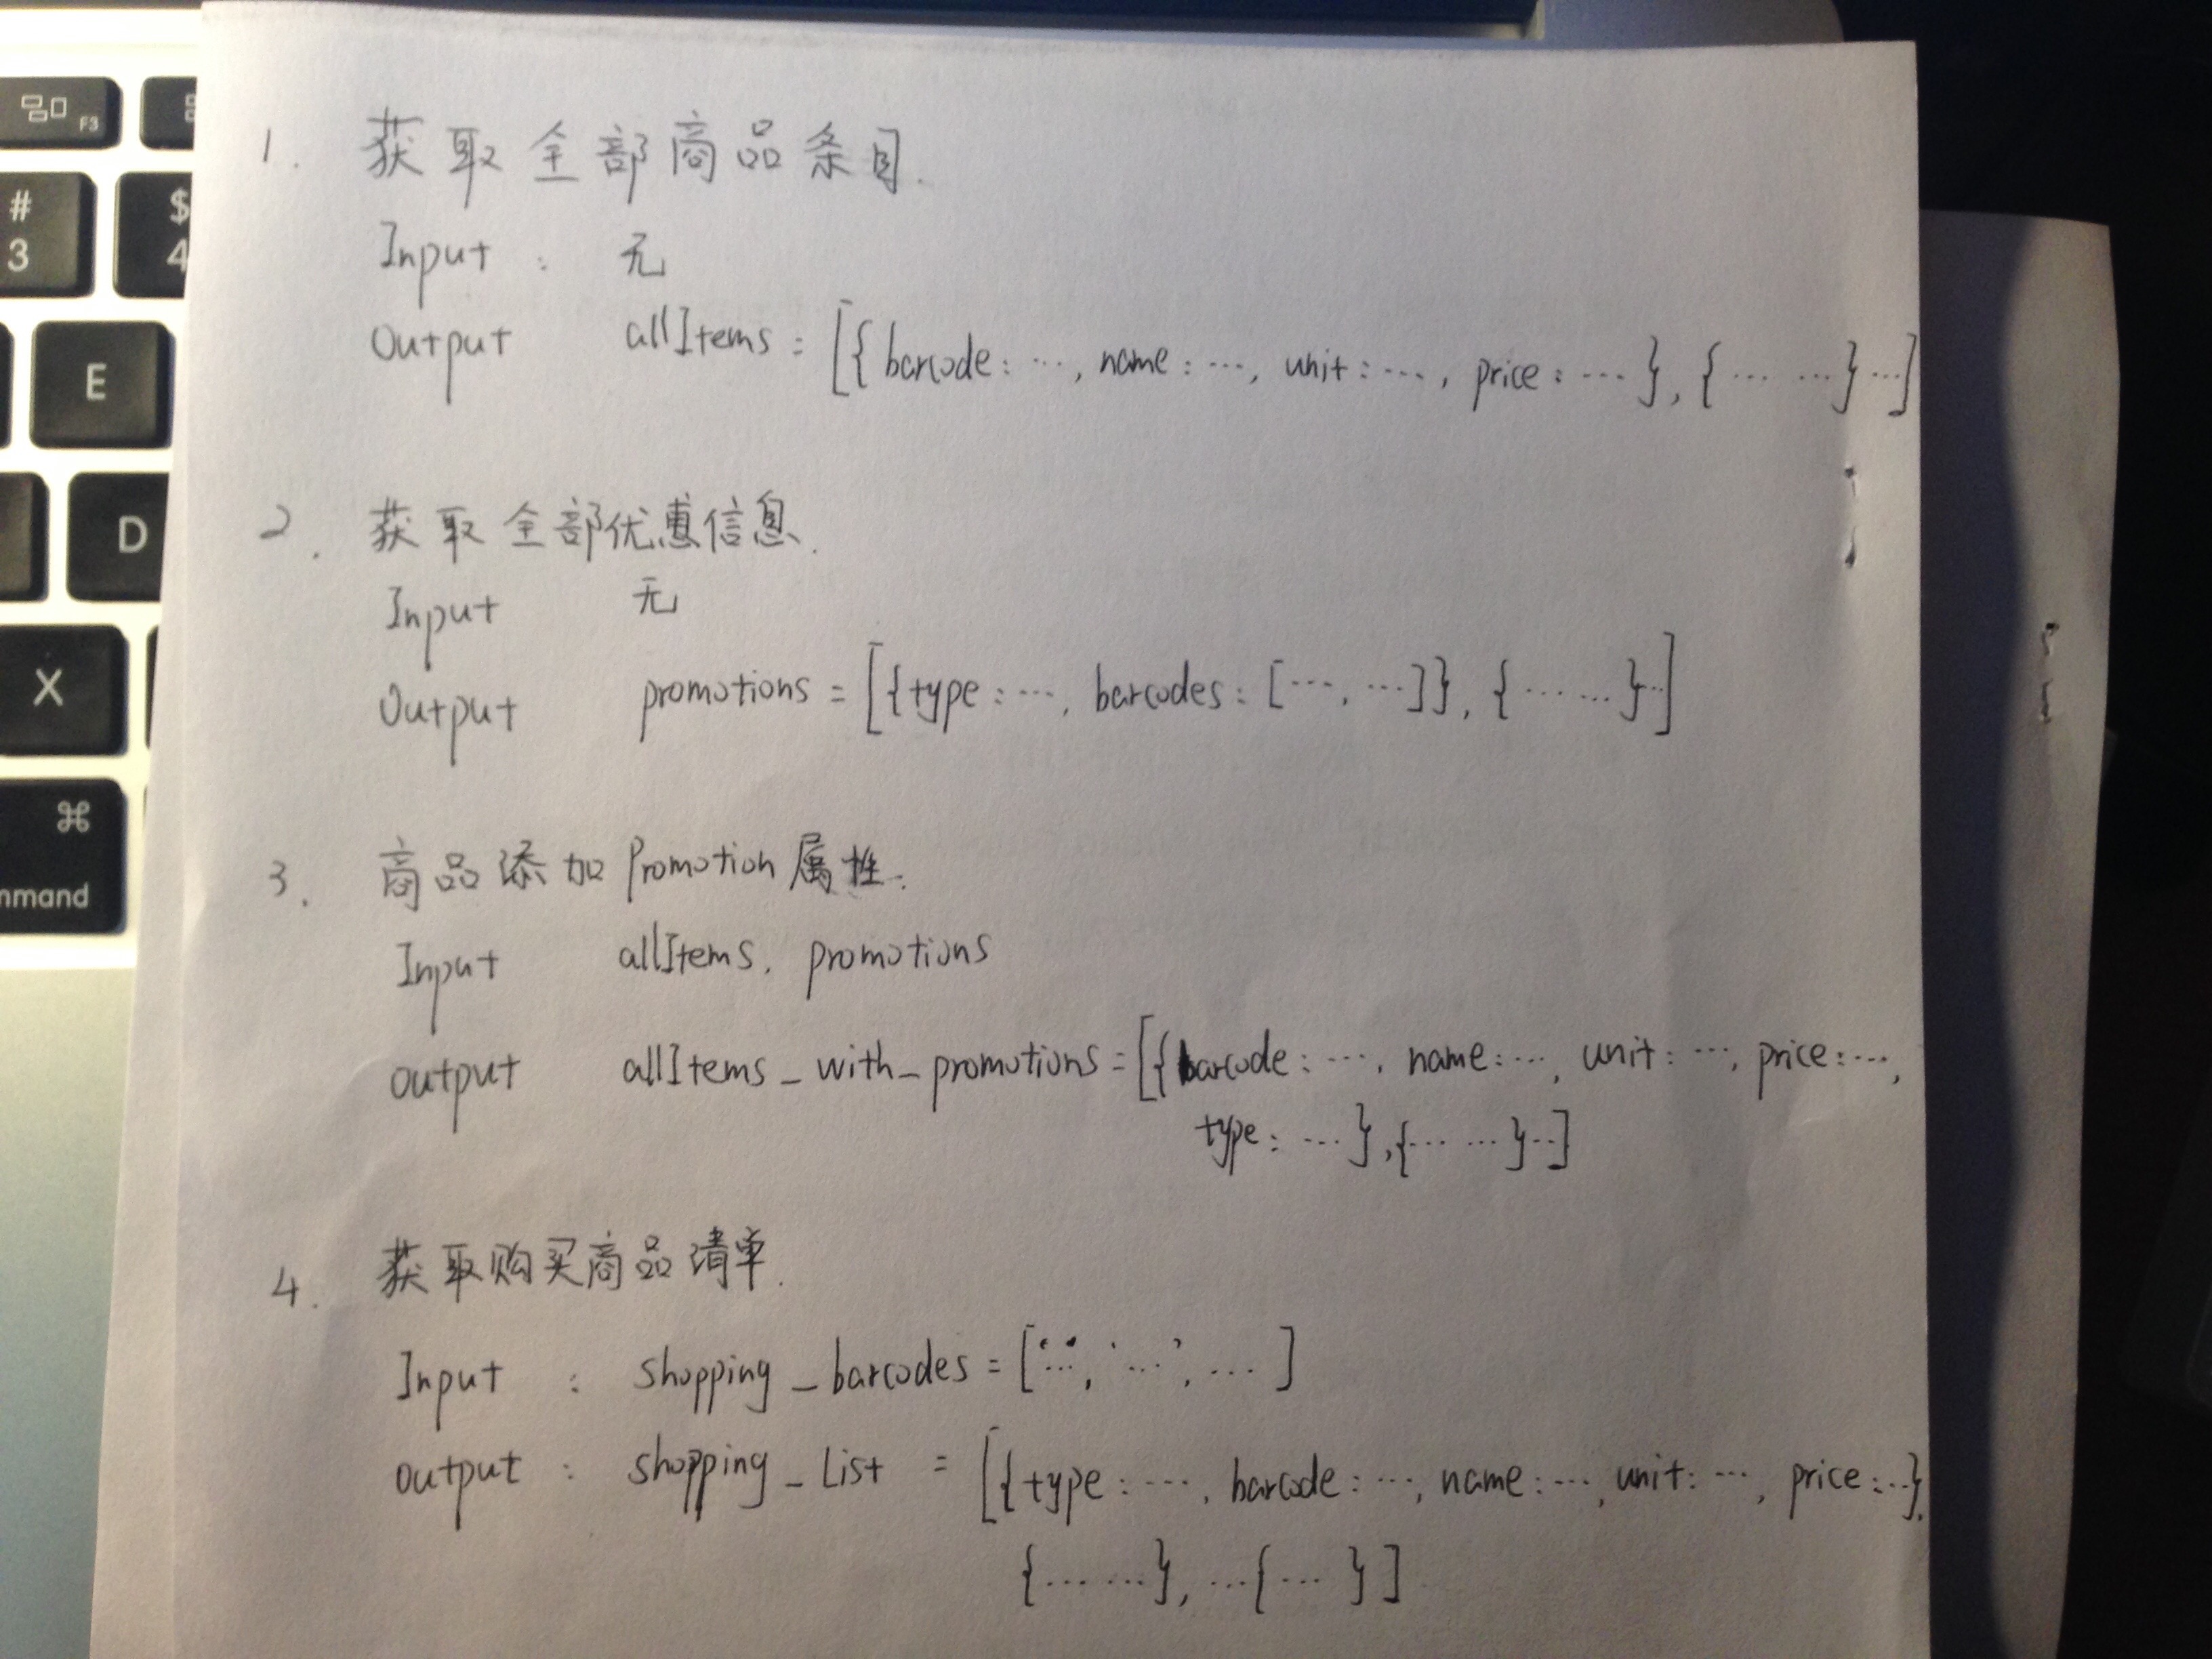 F3
#
3
$
4
E
D
X
⌘
mmand
1. 获取全部商品条目.
Input : 无
Output allItems = [{barcode: ..., name: ..., unit: ..., price: ...}, {... ...} ...]
2. 获取全部优惠信息.
Input 无
Output promotions = [{type: ..., barcodes: [..., ...]}, {... ...}...]
3. 商品添加 Promotion 属性.
Input allItems, promotions
output allItems_with_promotions = [{barcode: ..., name: ..., unit: ..., price: ...,
type: ...}, {... ...}...]
4. 获取购买商品清单.
Input : shopping_barcodes = ['...', '...', ...]
output : shopping_List = [{type: ..., barcode: ..., name: ..., unit: ..., price: ...},
{... ...}, ...{... }]